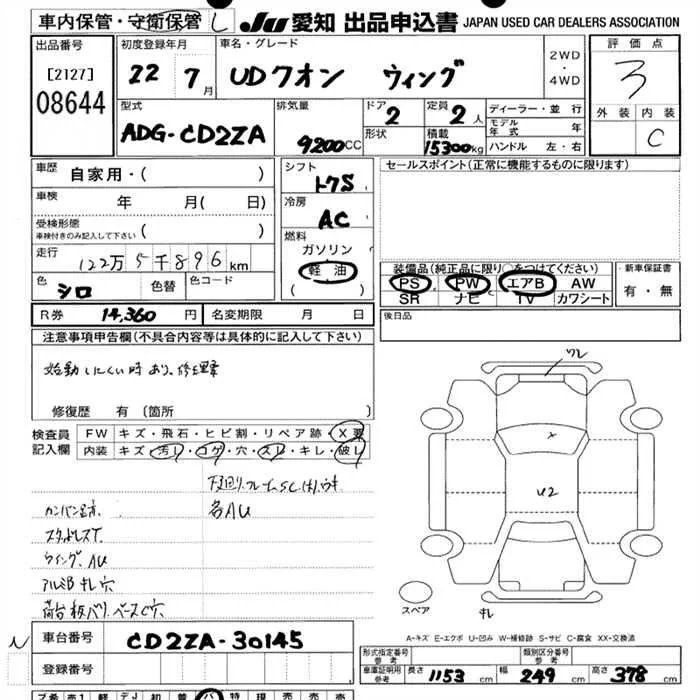 車内保管・守衛保管 し JU 愛知 出品申込書 JAPAN USED CAR DEALERS ASSOCIATION
出品番号
[2127]
08644
初度登録年月
22 7月
車名・グレード
UDクオン ウィング
2WD
・
4WD
評価点
3
外装 内装
C
型式
ADG-CD2ZA
排気量
9200CC
ドア
2
形状
定員
2人
積載
15300kg
ディーラー・並行
モデル年式 年
ハンドル 左・右
車歴
自家用・( )
車検
年 月( 日)
受検形態
車検付きのみ記入して下さい
( )
走行
122万5千896km
色
シロ
色替
色コード
シフト
冷房
AC
燃料
ガソリン
軽油
( )
セールスポイント(正常に機能するものに限ります)
装備品(純正品に限り○をつけてください)
PS PW エアB AW
SR ナビ TV カワシート
新車保証書
有・無
R券 14,360円
名変期限 月 日
後日品
注意事項申告欄(不具合内容等は具体的に記入して下さい)
始動しにくい時あり、修理要
修復歴 有 (箇所 )
検査員
記入欄
FW キズ・飛石・ヒビ割・リペア跡・X要
内装 キズ・汚し・コゲ・穴・スレ・キレ・破レ
各AU
カンバン跡
スタッドレスT
ウイングAU
アルミB キレ穴
ワレ
X
U2
スペア
キレ
A-キズ E-エクボ U-凹み W-補修跡 S-サビ C-腐食 XX-交換済
車台番号 CD2ZA-30145
登録番号
形式指定番号
参考
類別区分番号
参考
車庫証明用
参考
長さ 1153 cm 幅 249 cm 高さ 378 cm